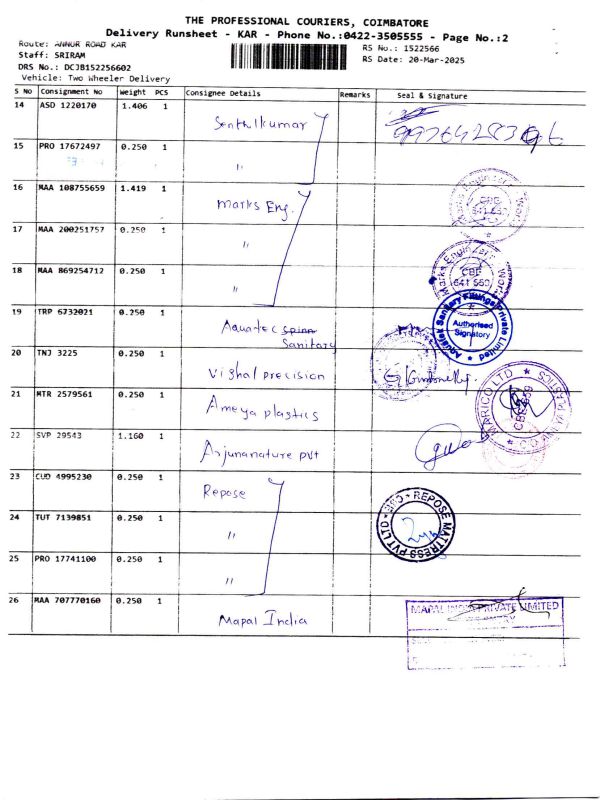 THE PROFESSIONAL COURIERS, COIMBATORE
Delivery Runsheet - KAR - Phone No.:0422-3505555 - Page No.:2
Route: ANNUR ROAD KAR
Staff: SRIRAM
DRS No.: DCJB152256602
Vehicle: Two Wheeler Delivery
RS No.: 1522566
RS Date: 20-Mar-2025
S No Consignment No Weight PCS Consignee Details Remarks Seal & Signature
14 ASD 1220170 1.406 1 Senthilkumar
15 PRO 17672497 0.250 1 "
16 MAA 108755659 1.419 1 Marks Eng.
17 MAA 200251757 0.250 1 "
18 MAA 869254712 0.250 1 "
Marks Engineers Works
CBE
641 659
19 TRP 6732021 0.250 1 Aquatec Sanitary
Aquatek Sanitary Fittings Private Limited
Authorised
Signatory
20 TNJ 3225 0.250 1 Vishal precision
21 MTR 2579561 0.250 1 Ameya plastics
MARRICO LTD
22 SVP 29543 1.160 1 Arjunanature pvt
23 CUD 4995230 0.250 1 Repose
24 TUT 7139851 0.250 1 "
REPOSE MATTRESS PVT LTD CBE
25 PRO 17741100 0.250 1 "
26 MAA 707770160 0.250 1 Mapal India
MAPAL INDIA PRIVATE LIMITED